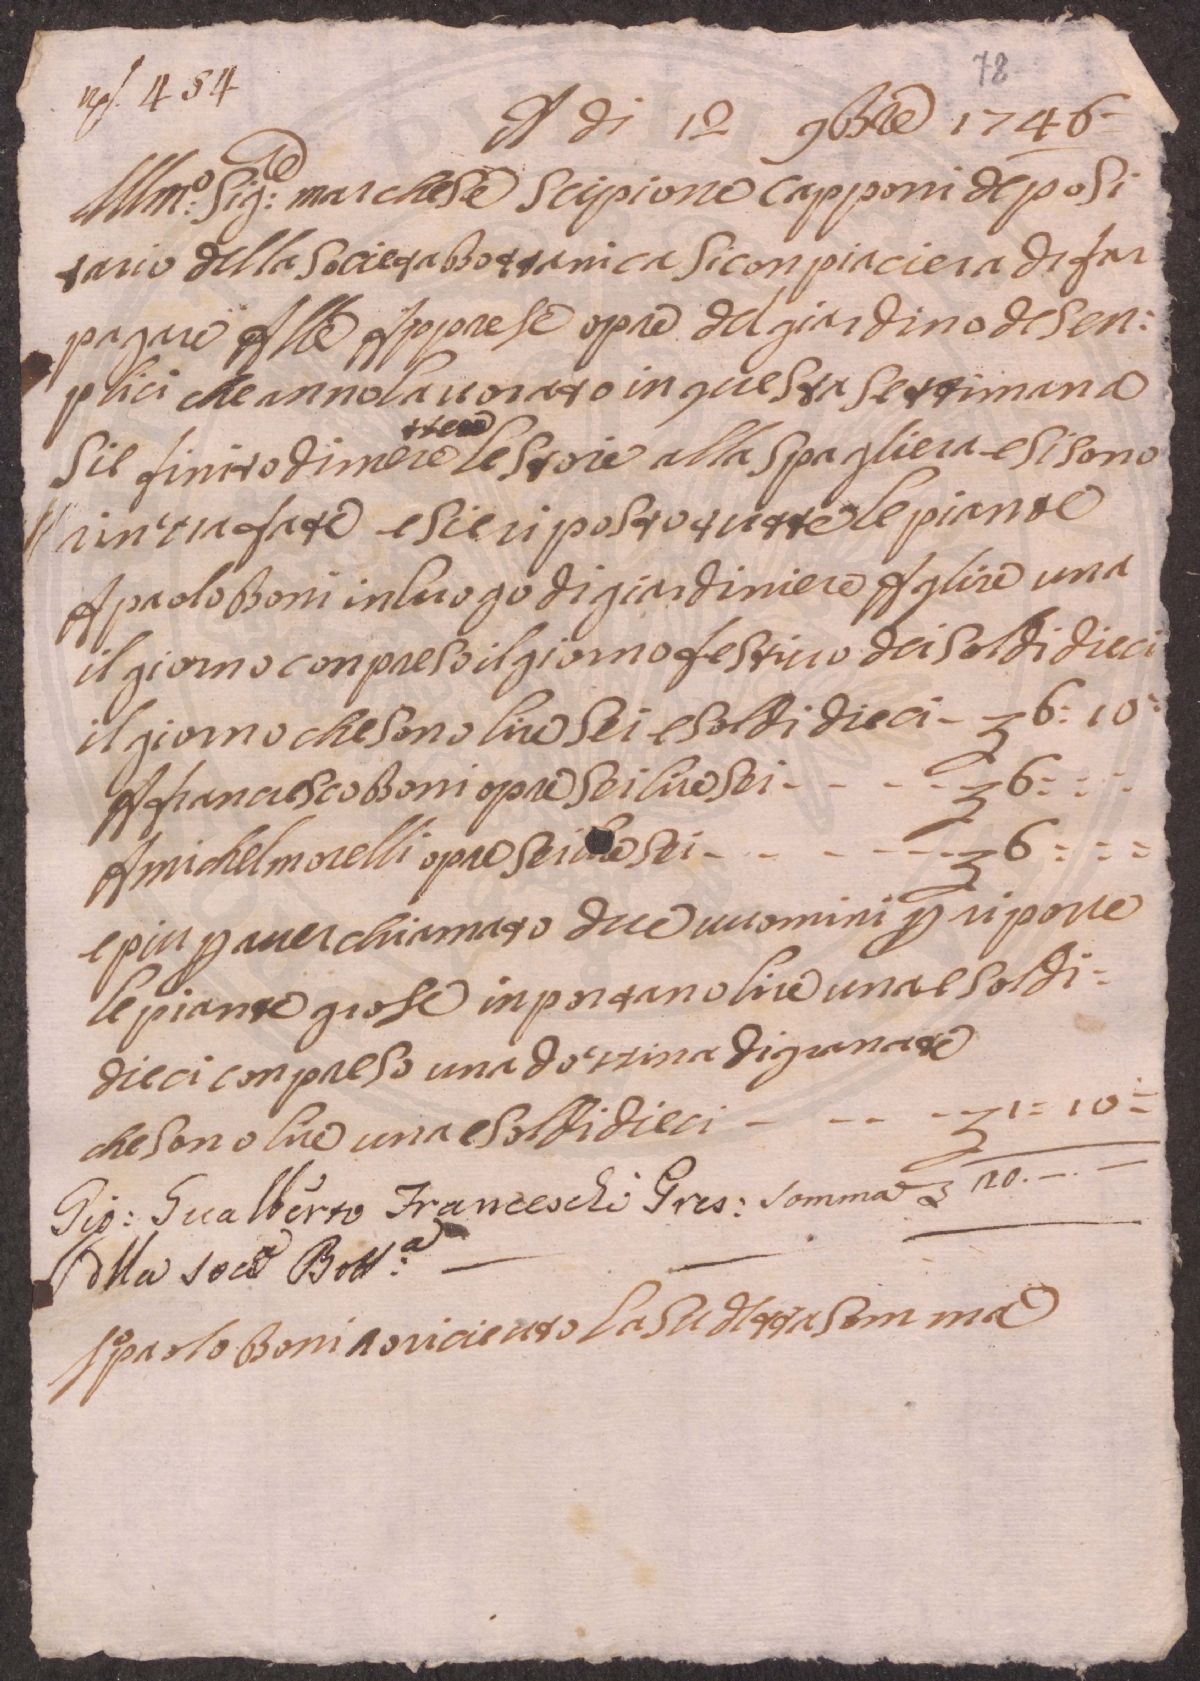 78
n.° 454
A di 1o 9bre 1746
Illmo. Sig:re marchese scipione capponi deposi
tario della societa bottanica si conpiaciera di far
pagare Alle Apprese opre del giardino de sen:
plici che anno lavorato in questa settimana
si e finito di mettere le stoie alla spagliera e si sono
rin e si e riposto tutte le piante
A paolo Boni in luogo di giardiniere A lire una
il giorno conpreso il giorno festivo dei soldi dieci
il giorno che sono lire sei e soldi dieci - 6: 10:
A francesco Boni opre sei lire sei - - - - 6: : :
A michel morelli opre sei lire sei - - - - 6 : : :
e piu p aver chiamato due uuomini p riporre
le piante grose inportano lire una e soldi =
dieci conpreso una dozzina di granate
che sono lire una e soldi dieci - - - - 1: 10:
Gio: Gualberto Franceschi Pres: somma 20. -. -
della soca Bott:a
Io paolo Boni o riceuto la sudetta somma